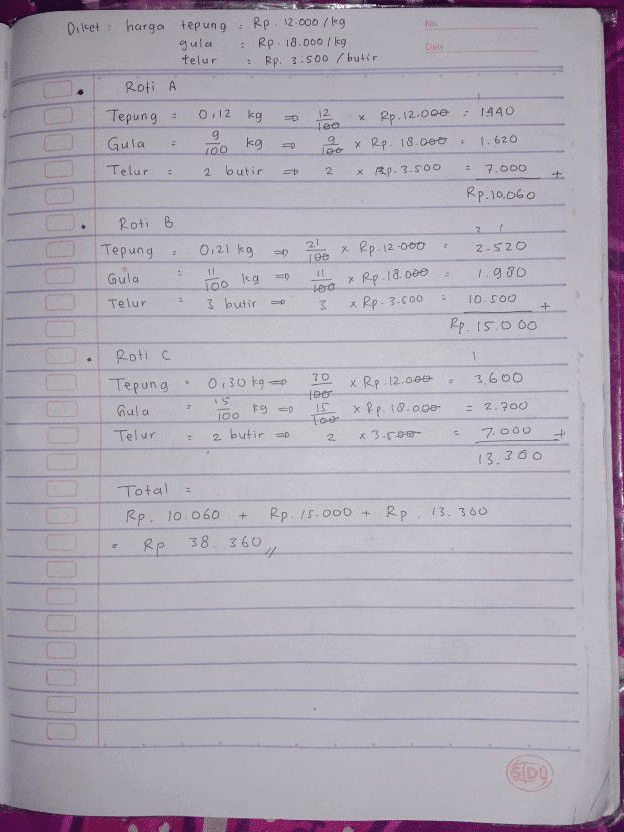 Diket : harga tepung : Rp. 12.000 / kg
No
gula : Rp. 18.000 / kg
Date :
telur : Rp. 3.500 / butir
Roti A
Tepung = 0,12 kg ⇒ 12/100 × Rp. 12.000 = 1440
Gula = 9/100 kg ⇒ 9/100 × Rp. 18.000 = 1.620
Telur = 2 butir ⇒ 2 × Rp. 3.500 = 7.000 +
Rp. 10.060
Roti B
Tepung = 0,21 kg ⇒ 21/100 × Rp. 12.000 = 2.520
Gula = 11/100 kg ⇒ 11/100 × Rp. 18.000 = 1.980
Telur = 3 butir ⇒ 3 × Rp. 3.500 = 10.500 +
Rp. 15.000
Roti C
Tepung = 0,30 kg ⇒ 30/100 × Rp. 12.000 = 3.600
Gula = 15/100 kg ⇒ 15/100 × Rp. 18.000 = 2.700
Telur = 2 butir ⇒ 2 × 3.500 = 7.000 +
13.300
Total =
Rp. 10.060 + Rp. 15.000 + Rp. 13.300
= Rp 38.360 //
SiDU